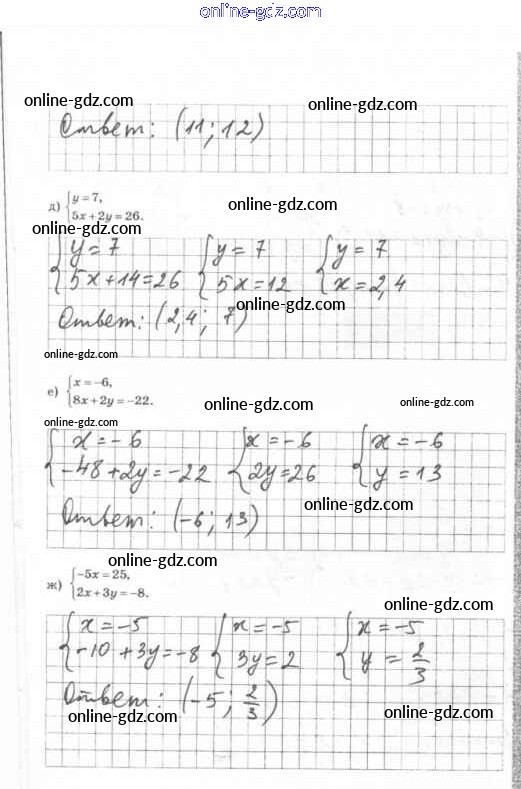 online-gdz.com
online-gdz.com
online-gdz.com
Ответ: (11; 12)
д) { y = 7,
5x + 2y = 26.
online-gdz.com
online-gdz.com
{ y = 7 { y = 7 { y = 7
5x + 14 = 26 5x = 12 x = 2,4
online-gdz.com
Ответ: (2,4; 7)
online-gdz.com
е) { x = –6,
8x + 2y = –22.
online-gdz.com
online-gdz.com
{ x = –6 { x = –6 { x = –6
–48 + 2y = –22 2y = 26 y = 13
online-gdz.com
Ответ: (–6; 13)
online-gdz.com
ж) { –5x = 25,
2x + 3y = –8.
online-gdz.com
{ x = –5 { x = –5 { x = –5
–10 + 3y = –8 3y = 2 y = 2/3
Ответ: (–5; 2/3)
online-gdz.com
online-gdz.com